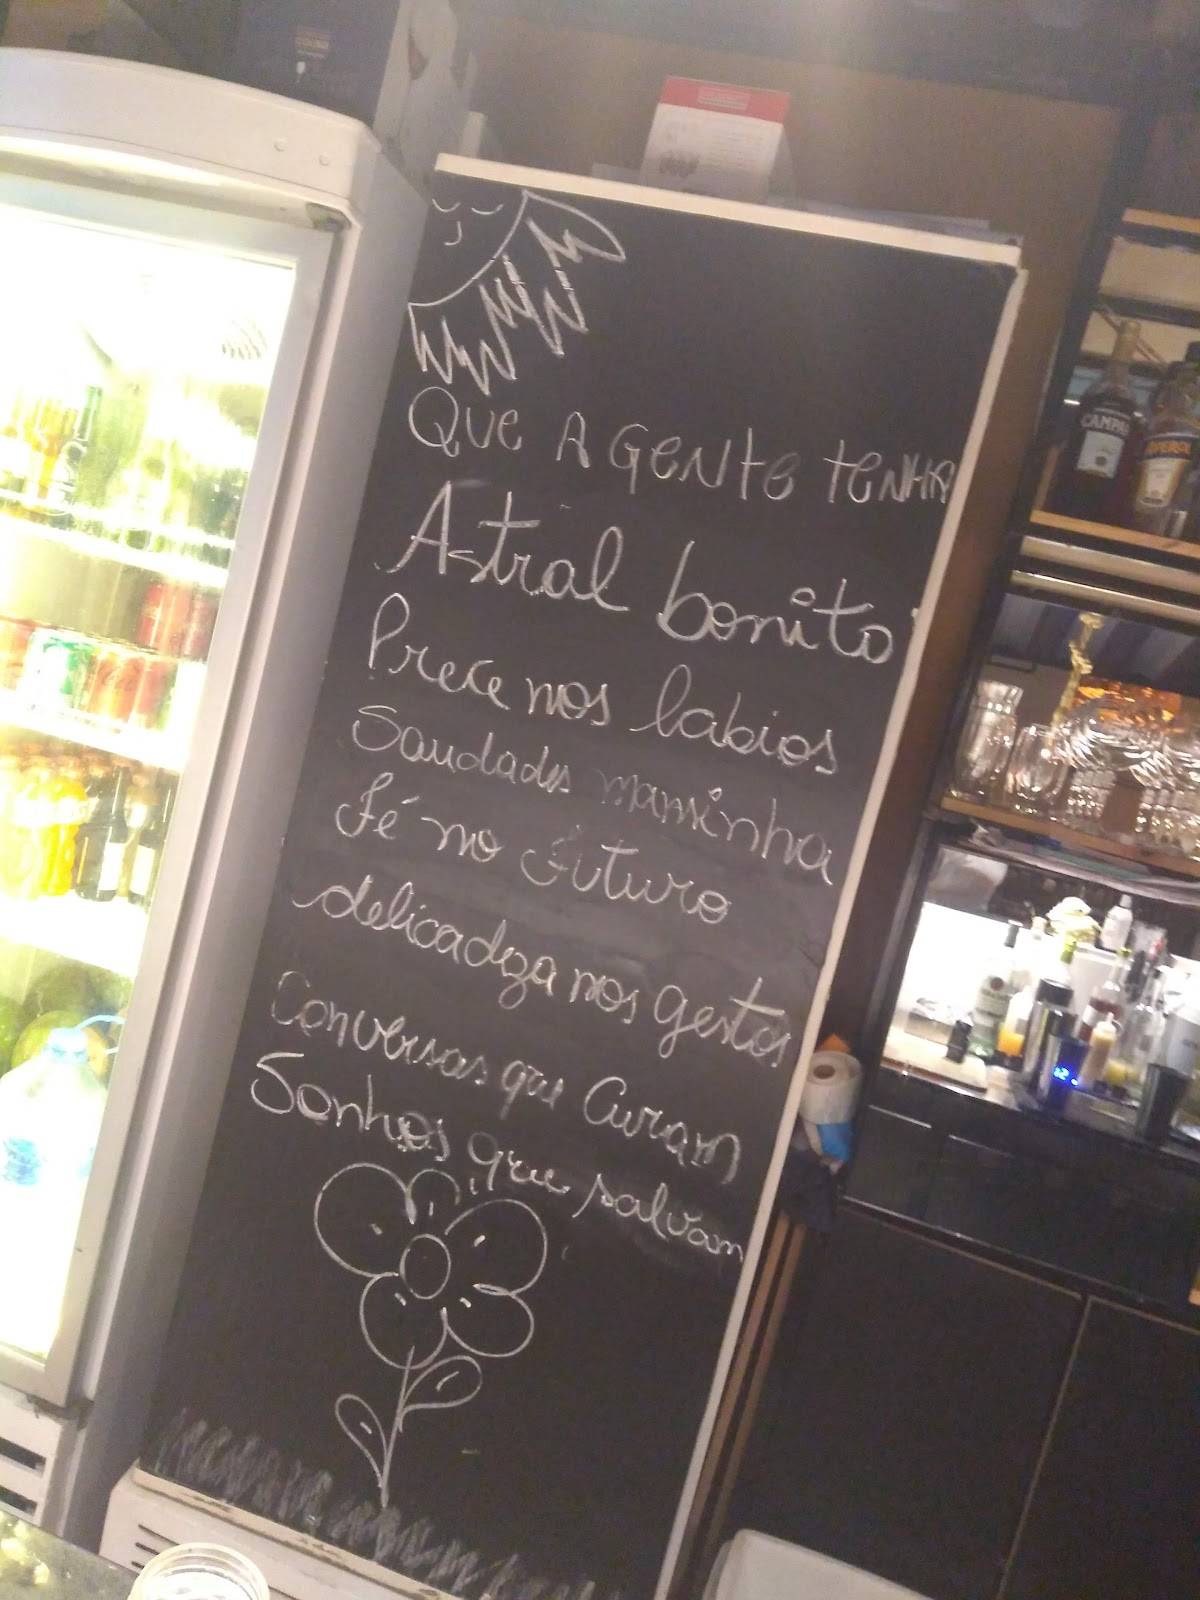 Que A gente tenha
Astral bonito
Prece nos labios
Saudades mansinha
Fé no Futuro
delicadeza nos gestos
Conversas que Curam
Sonhos que salvam
CAMPARI
APEROL